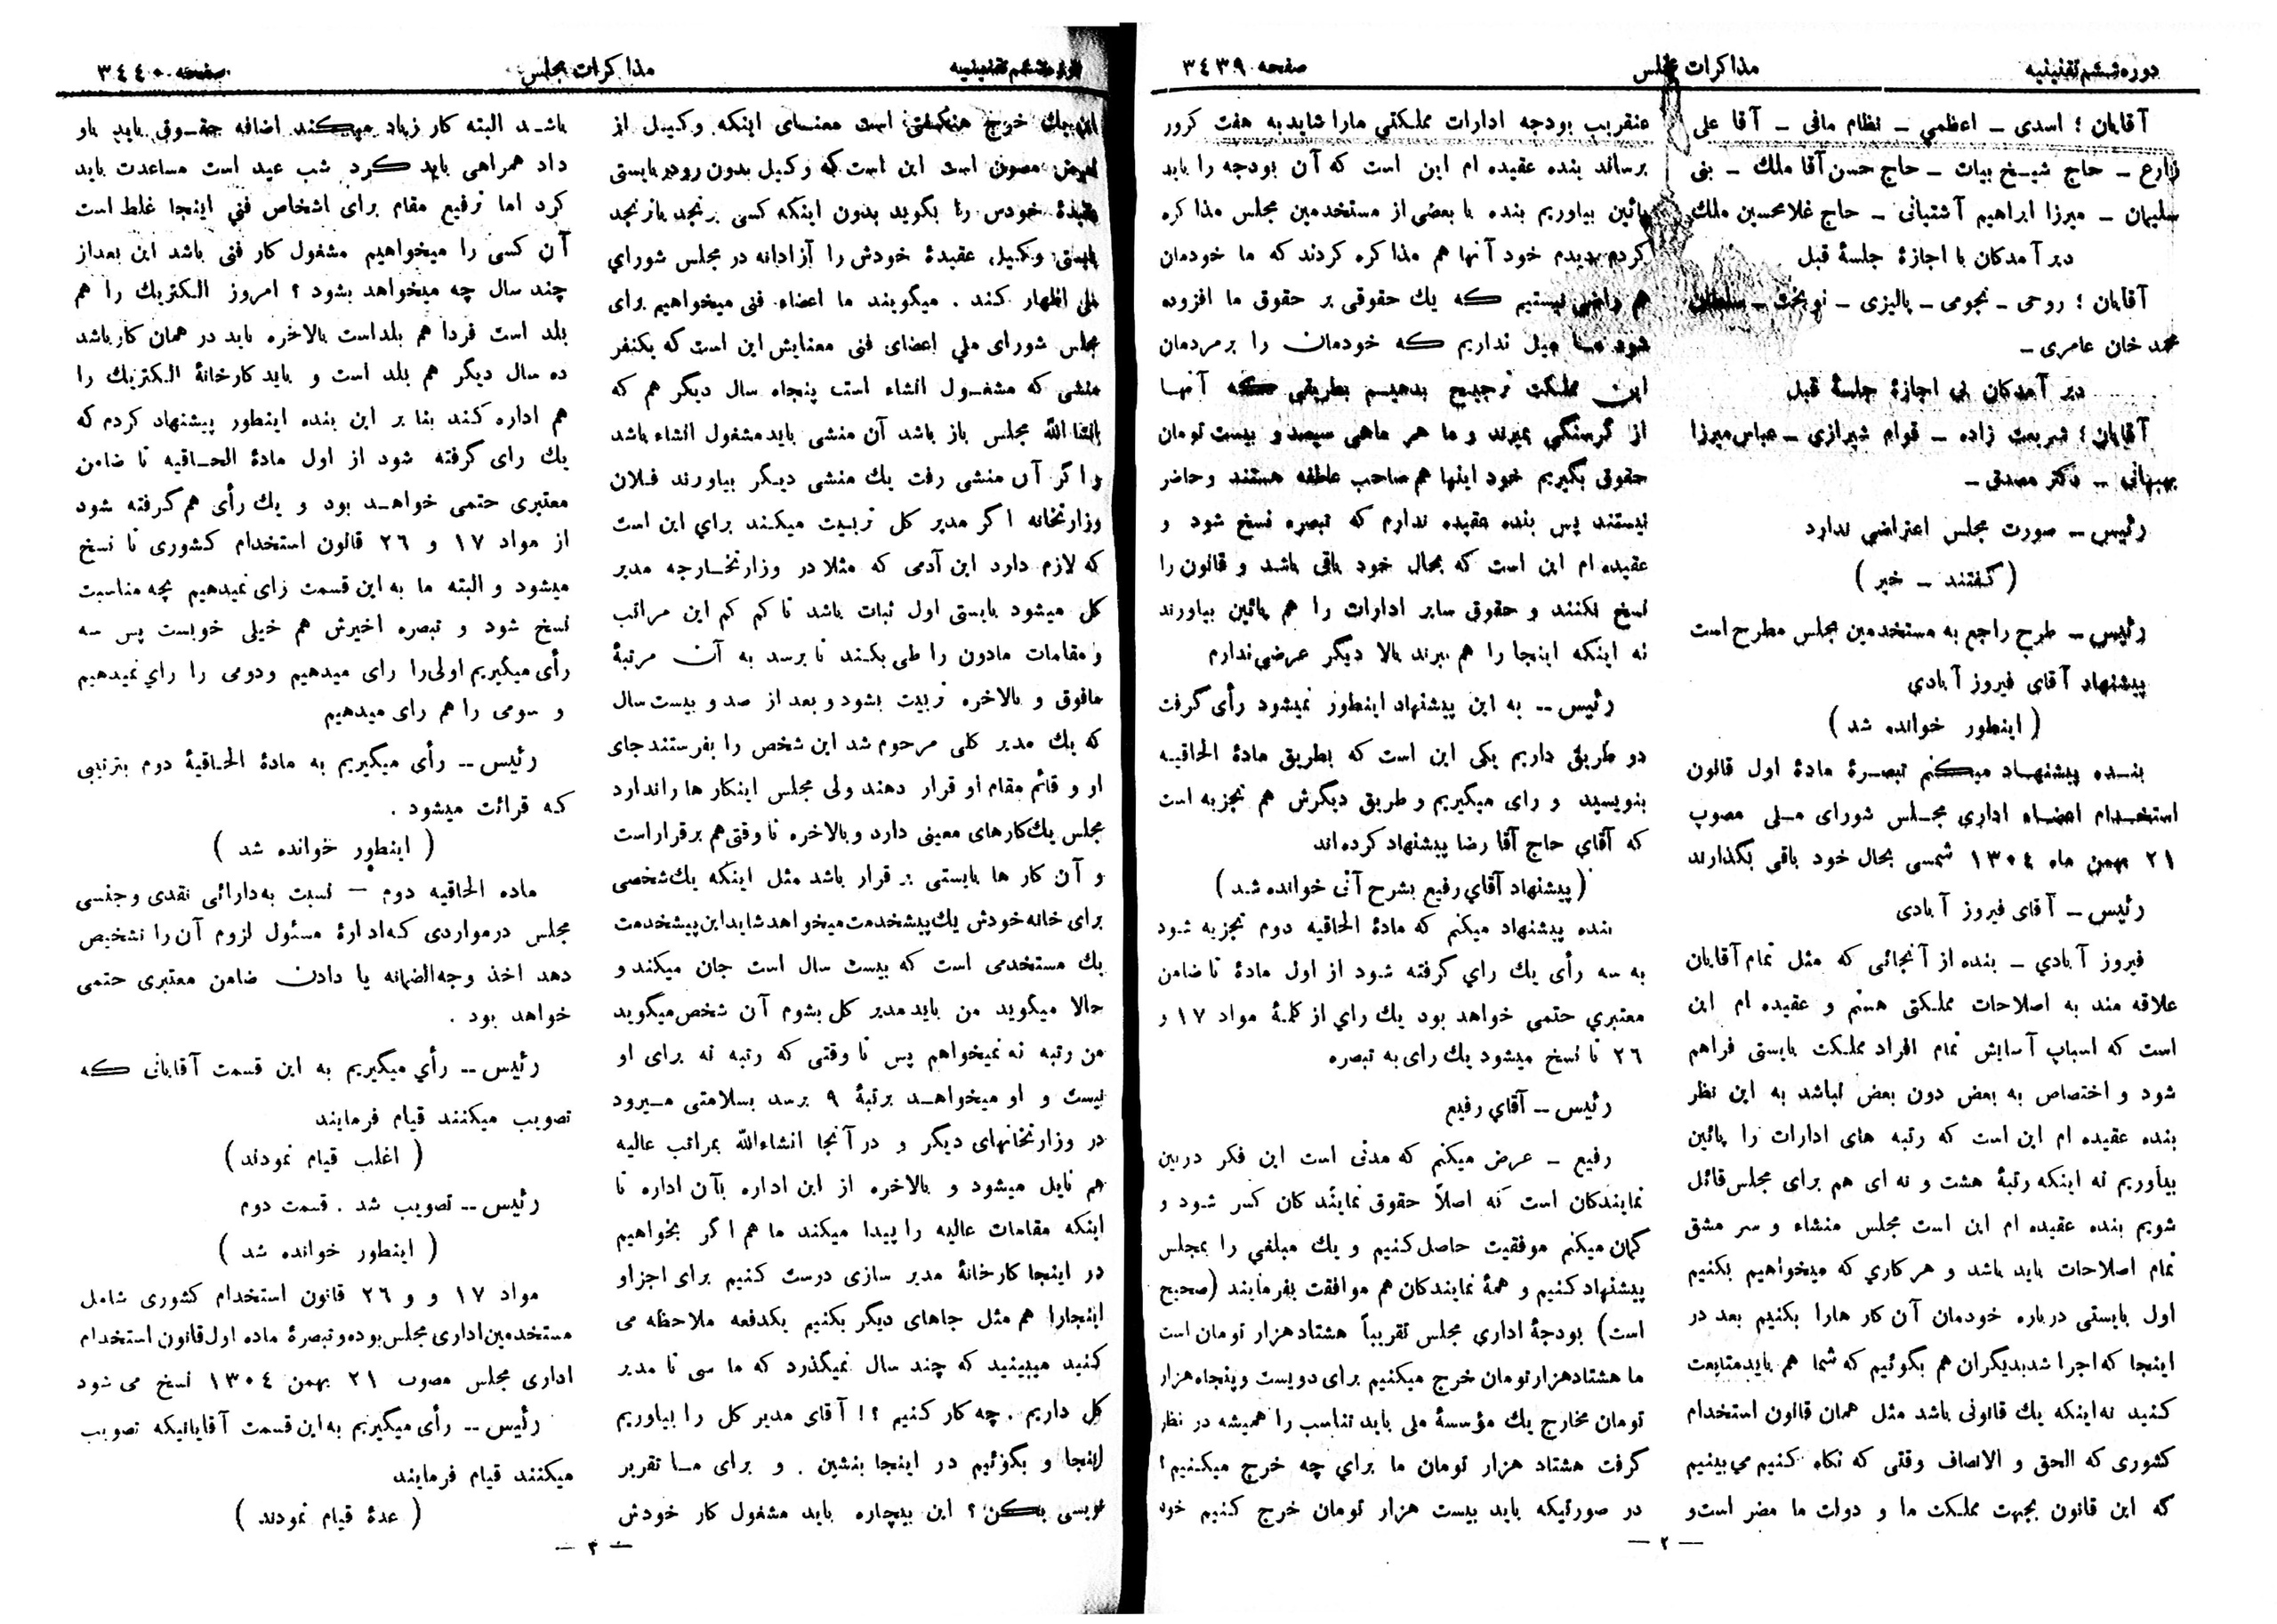 دوره ششم تقنینیه
مذاکرات مجلس
صفحه ۳۴۳۹
آقایان : اسدی ـ اعظمی ـ نظام مافی ـ آقا علی
زارع ـ حاج شیخ بیات ـ حاج حسن آقا ملك ـ بنی
سلیمان ـ میرزا ابراهیم آشتیانی ـ حاج غلامحسین ملك
دیر آمدکان با اجازهٔ جلسهٔ قبل
آقایان : روحی ـ نجومی ـ پالیزی ـ نوبخت ـ سلطان
محمد خان عامری ـ
دیر آمدکان بی اجازهٔ جلسهٔ قبل
آقایان : شریعت زاده ـ قوام شیرازی ـ عباس میرزا
بهبهانی ـ دکتر مصدق ـ
رئیس ـ صورت مجلس اعتراضی ندارد
( گفتند ـ خیر )
رئیس ـ طرح راجع به مستخدمین مجلس مطرح است
پیشنهاد آقای فیروز آبادي
( اینطور خوانده شد )
بنده پیشنهاد میکنم تبصرهٔ مادهٔ اول قانون
استخدام اعضاء اداری مجلس شورای ملی مصوب
۲۱ بهمن ماه ۱۳۰۴ شمسی بحال خود باقی بگذارند
رئیس ـ آقای فیروز آبادی
فیروز آبادي ـ بنده از آنجائی که مثل تمام آقایان
علاقه مند به اصلاحات مملکتی هستم و عقیده ام این
است که اسباب آسایش تمام افراد مملکت بایستی فراهم
شود و اختصاص به بعض دون بعض نباشد به این نظر
بنده عقیده ام این است که رتبه های ادارات را پائین
بیاوریم نه اینکه رتبهٔ هشت و نه ای هم برای مجلس قائل
شویم بنده عقیده ام این است مجلس منشاء و سر مشق
تمام اصلاحات باید باشد و هر کاري که میخواهیم بکنیم
اول بایستی درباره خودمان آن کار هارا بکنیم بعد در
اینجا که اجرا شد بدیگران هم بگوئیم که شما هم باید متابعت
کنید نه اینکه یك قانونی باشد مثل همان قانون استخدام
کشوری که الحق و الانصاف وقتی که نکاه کنیم می بینیم
که این قانون بجهت مملکت ما و دولت ما مضر است و
عنقریب بودجه ادارات مملکتي مارا شاید به هفت کرور
برساند بنده عقیده ام این است که آن بودجه را باید
پائین بیاوریم بنده با بعضی از مستخدمین مجلس مذاکره
کردم دیدم خود آنها هم مذاکره کردند که ما خودمان
هم راضی نیستیم که یك حقوقی بر حقوق ما افزوده
شود ما میل نداریم که خودمان را بر مردمان
این مملکت ترجیح بدهیم بطریقی که آنها
از گرسنگی بمیرند و ما هر ماهی سیصد و بیست تومان
حقوق بگیریم خود اینها هم صاحب عاطفه هستند و حاضر
نیستند پس بنده عقیده ندارم که تبصره نسخ شود و
عقیده ام این است که بحال خود باقی باشد و قانون را
نسخ نکنند و حقوق سایر ادارات را هم پائین بیاورند
نه اینکه اینجا را هم ببرند بالا دیگر عرضی ندارم
رئیس -- به این پیشنهاد اینطور نمیشود رأی گرفت
دو طریق داریم یکی این است که بطریق مادهٔ الحاقیه
بنویسید و رای میگیریم و طریق دیگرش هم تجزیه است
که آقاي حاج آقا رضا پیشنهاد کرده اند
( پیشنهاد آقاي رفیع بشرح آتی خوانده شد )
بنده پیشنهاد میکنم که مادهٔ الحاقیه دوم تجزیه شود
به سه رأی یك راي گرفته شود از اول مادهٔ تا ضامن
معتبري حتمی خواهد بود یك راي از کلمهٔ مواد ۱۷ و
۲۶ تا نسخ میشود یك رای به تبصره
رئیس -- آقاي رفیع
رفیع ـ عرض میکنم که مدتی است این فکر دربین
نمایندکان است که اصلاً حقوق نمایندکان کسر شود و
گمان میکنم موفقیت حاصل کنیم و یك مبلغي را بمجلس
پیشنهاد کنیم و همهٔ نمایندکان هم موافقت بفرمایند (صحیح
است) بودجهٔ اداري مجلس تقریباً هشتاد هزار تومان است
ما هشتاد هزار تومان خرج میکنیم برای دویست و پنجاه هزار
تومان مخارج یك مؤسسهٔ ملی باید تناسب را همیشه در نظر
گرفت هشتاد هزار تومان ما براي چه خرج میکنیم ؟
در صورتیکه باید بیست هزار تومان خرج کنیم خود
— ۲ —
دوره ششم تقنینیه
مذاکرات مجلس
صفحه ۳۴۴۰
این یك خرج هنگفتی است معنای اینکه وکیل از
تعرض مصون است این است که وکیل بدون رودربایستی
عقیدهٔ خودش را بگوید بدون اینکه کسی برنجد یا نرنجد
بایستی وکیل عقیدهٔ خودش را آزادانه در مجلس شورای
ملی اظهار کند . میگویند ما اعضاء فنی میخواهیم برای
مجلس شورای ملي اعضای فنی معنایش این است که یکنفر
منشی که مشغول انشاء است پنجاه سال دیگر هم که
انشاالله مجلس باز باشد آن منشی باید مشغول انشاء باشد
و اگر آن منشی رفت یك منشی دیگر بیاورند فلان
وزارتخانه اگر مدیر کل تربیت میکند براي این است
که لازم دارد این آدمی که مثلا در وزارتخارجه مدیر
کل میشود بایستی اول ثبات باشد تا کم کم این مراتب
و مقامات مادون را طی بکند تا برسد به آن مرتبهٔ
مافوق و بالاخره تربیت بشود و بعد از صد و بیست سال
که یك مدیر کلی مرحوم شد این شخص را بفرستند جای
او و قائم مقام او قرار دهند ولی مجلس اینکار ها را ندارد
مجلس یك کارهای معینی دارد و بالاخره تا وقتی هم برقرار است
و آن کار ها بایستی بر قرار باشد مثل اینکه یك شخصی
برای خانه خودش یك پیشخدمت میخواهد شاید این پیشخدمت
یك مستخدمی است که بیست سال است جان میکند و
حالا میگوید من باید مدیر کل بشوم آن شخص میگوید
من رتبه نه نمیخواهم پس تا وقتی که رتبه نه برای او
نیست و او میخواهد برتبهٔ ۹ برسد بسلامتی میرود
در وزارتخانهای دیگر و در آنجا انشاءالله بمراتب عالیه
هم نایل میشود و بالاخره از این اداره بآن اداره تا
اینکه مقامات عالیه را پیدا میکند ما هم اگر بخواهیم
در اینجا کارخانهٔ مدیر سازی درست کنیم برای اجزاو
اینجارا هم مثل جاهای دیگر بکنیم یکدفعه ملاحظه می
کنید میبینید که چند سال نمیگذرد که ما سی تا مدیر
کل داریم . چه کار کنیم ؟! آقای مدیر کل را بیاوریم
اینجا و بگوئیم در اینجا بنشین . و برای ما تقریر
نویسی بکن ؟ این بیچاره باید مشغول کار خودش
باشد البته کار زیاد میکند اضافه حقوق باید باو
داد همراهی باید کرد شب عید است مساعدت باید
کرد اما ترفیع مقام برای اشخاص فني اینجا غلط است
آن کسی را میخواهیم مشغول کار فنی باشد این بعداز
چند سال چه میخواهد بشود ؟ امروز الکتریك را هم
بلد است فردا هم بلداست بالاخره باید در همان کار باشد
ده سال دیگر هم بلد است و باید کارخانهٔ الکتریك را
هم اداره کند بنا بر این بنده اینطور پیشنهاد کردم که
یك رای گرفته شود از اول مادهٔ الحاقیه تا ضامن
معتبری حتمی خواهد بود و یك رأی هم گرفته شود
از مواد ۱۷ و ۲۶ قانون استخدام کشوری تا نسخ
میشود و البته ما به این قسمت رای نمیدهیم بچه مناسبت
نسخ شود و تبصره اخیرش هم خیلی خوبست پس سه
رأی میگیریم اولی را رای میدهیم ودومی را راي نمیدهیم
و سومی را هم رای میدهیم
رئیس -- رأی میگیریم به مادهٔ الحاقیهٔ دوم بترتیبی
که قرائت میشود .
( اینطور خوانده شد )
ماده الحاقیه دوم — نسبت به دارائی نقدی و جنسی
مجلس در مواردی که ادارهٔ مسئول لزوم آن را تشخیص
دهد اخذ وجه الضمانه یا دادن ضامن معتبری حتمی
خواهد بود .
رئیس -- رأي میگیریم به این قسمت آقایانی که
تصویب میکنند قیام فرمایند
( اغلب قیام نمودند )
رئیس -- تصویب شد . قسمت دوم
( اینطور خوانده شد )
مواد ۱۷ و و ۲۶ قانون استخدام کشوری شامل
مستخدمین اداری مجلس بوده و تبصرهٔ ماده اول قانون استخدام
اداری مجلس مصوب ۲۱ بهمن ۱۳۰۴ نسخ می شود
رئیس -- رأی میگیریم به این قسمت آقایانیکه تصویب
میکنند قیام فرمایند
( عدهٔ قیام نمودند )
— ۳ —